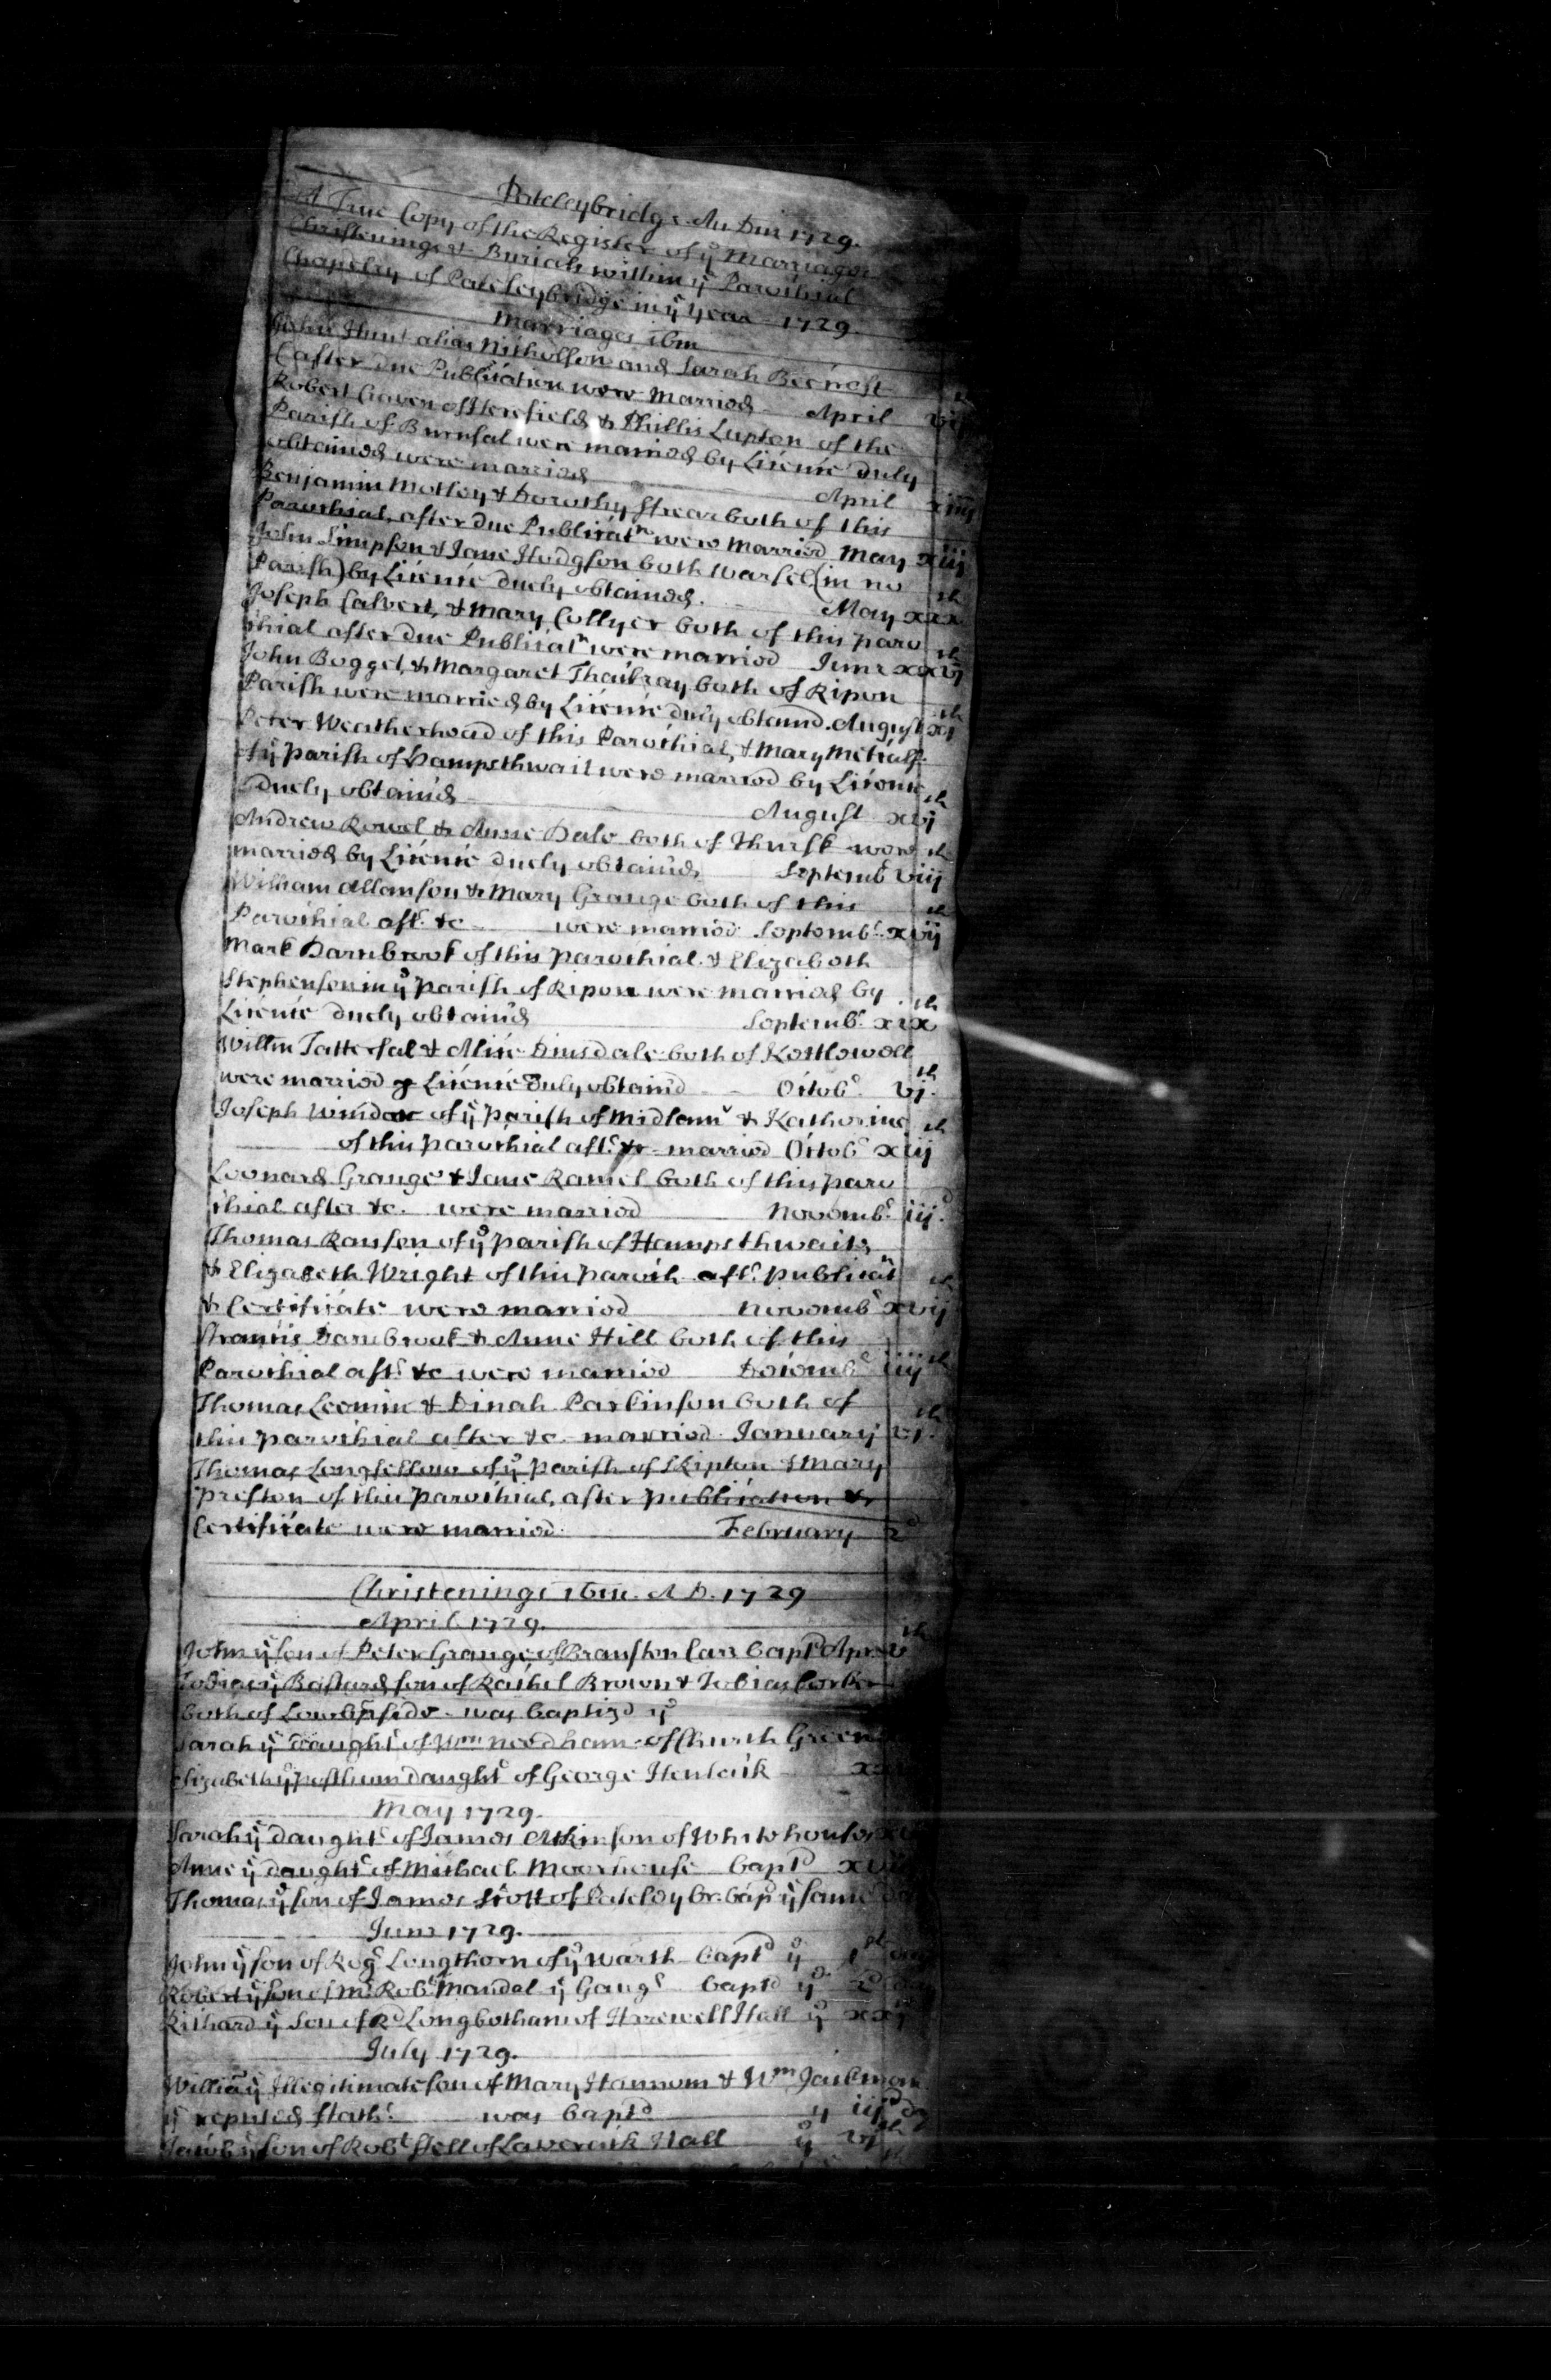 Pateleybridge An Dni 1729.
A True Copy of the Register of yᵉ Marriages
Christenings & Burials within yᵉ Parochial
Chapelry of Pateleybridge in yᵉ year 1729.
Marriages ibm
John Hunt alias Nicholson and Sarah Beecroft
(after due Publication were Married April
Robert Craven of Herefield & Phillis Lupton of the
Parish of Burnsal were married by Licence duly
obtained were married April
Benjamin Motley & Dorothy both of this
Parochial, after due Publicatⁿ were Married May xiij
John Simpson & Jane Hodgson both Warsel (in no
Parish) by Licence duely obtained. May xxx th
Joseph Calvert, & Mary Collyer both of this paro
chial after due Publicatⁿ were married June xxvj th
John Bogget, & Margaret Thackray both of Ripon
Parish were married by Licence duly obtaind. August xj th
Peter Weatherhead of this Parochial, & Mary Metcalf
of yᵉ Parish of Hampsthwait were married by Licence
duely obtain'd August xvj th
Andrew Rowel & Anne Dale both of Thirsk were
married by Licence duely obtain'd, Septembʳ viij th
William Allanson & Mary Grange both of this
Parochial aftʳ &c were married Septembʳ xvij th
Mark Darnbrook of this parochial & Elizabeth
Stephenson in yᵉ parish of Ripon were married by
Licence duely obtain'd Septembʳ xix th
Willm Tattersal & Alice Dinsdale both of Kettlewell
were married Licence Duly obtain'd Octobʳ vj th
Joseph of yᵉ parish of Midlam & Katherine
of this parochial aftʳ &c married Octobʳ xiij th
Leonard Grange & Jane Ramel both of this paro
chial after &c. were married Novembʳ iijᵈ
Thomas Ranson of yᵉ parish of Hampsthwaite
& Elizabeth Wright of this paroch aftʳ publicatⁿ
& Certificate were married Novembʳ xvij th
Francis Darnbrook & Anne Hill both of this
Parochial aftʳ &c were married Decembʳ iiij th
Thomas Leemin & Dinah Parkinson both of
this parochial after &c married January vj th
Thomas Longfellow of yᵉ parish of Skipton & Mary
Preston of this parochial, after publication &
Certificate were married February 2ᵈ
Christenings ibm. A D. 1729
April 1729.
John yᵉ son of Peter Grange, of Branston Carr bapᵗᵈ Apr v th
Tobias yᵉ Bastard son of Rachel Brown & Tobias
both of was baptizd yᵉ
Sarah yᵉ daughtʳ of Wᵐ Needham of Church Green
Elizabeth yᵉ posthum daughtʳ of George Henlock
May 1729.
Sarah yᵉ daughtʳ of James Atkinson of Whitehouses
Anne yᵉ daughtʳ of Michael Moorhouse bapᵗᵈ
Thomas yᵉ son of James Scott of Pateley br. bap yᵉ same
June 1729.
John yᵉ son of Rogʳ Longthorn of yᵉ Warth bapᵗᵈ yᵉ 1ˢᵗ
Robert yᵉ son of Mʳ Robᵗ Mandel yᵉ Gaugʳ bapᵗᵈ yᵉ 2ᵈ
Richard yᵉ Son of Rᵈ Longbotham of Harewell Hall yᵉ
July 1729.
William yᵉ Illegitimate son of Mary Hannom & Wᵐ Jackman
yᵉ reputed ffathʳ was bapᵗᵈ y iijᵈ
Jacob yᵉ son of Robᵗ Stell of Laverack Hall yᵉ vj th